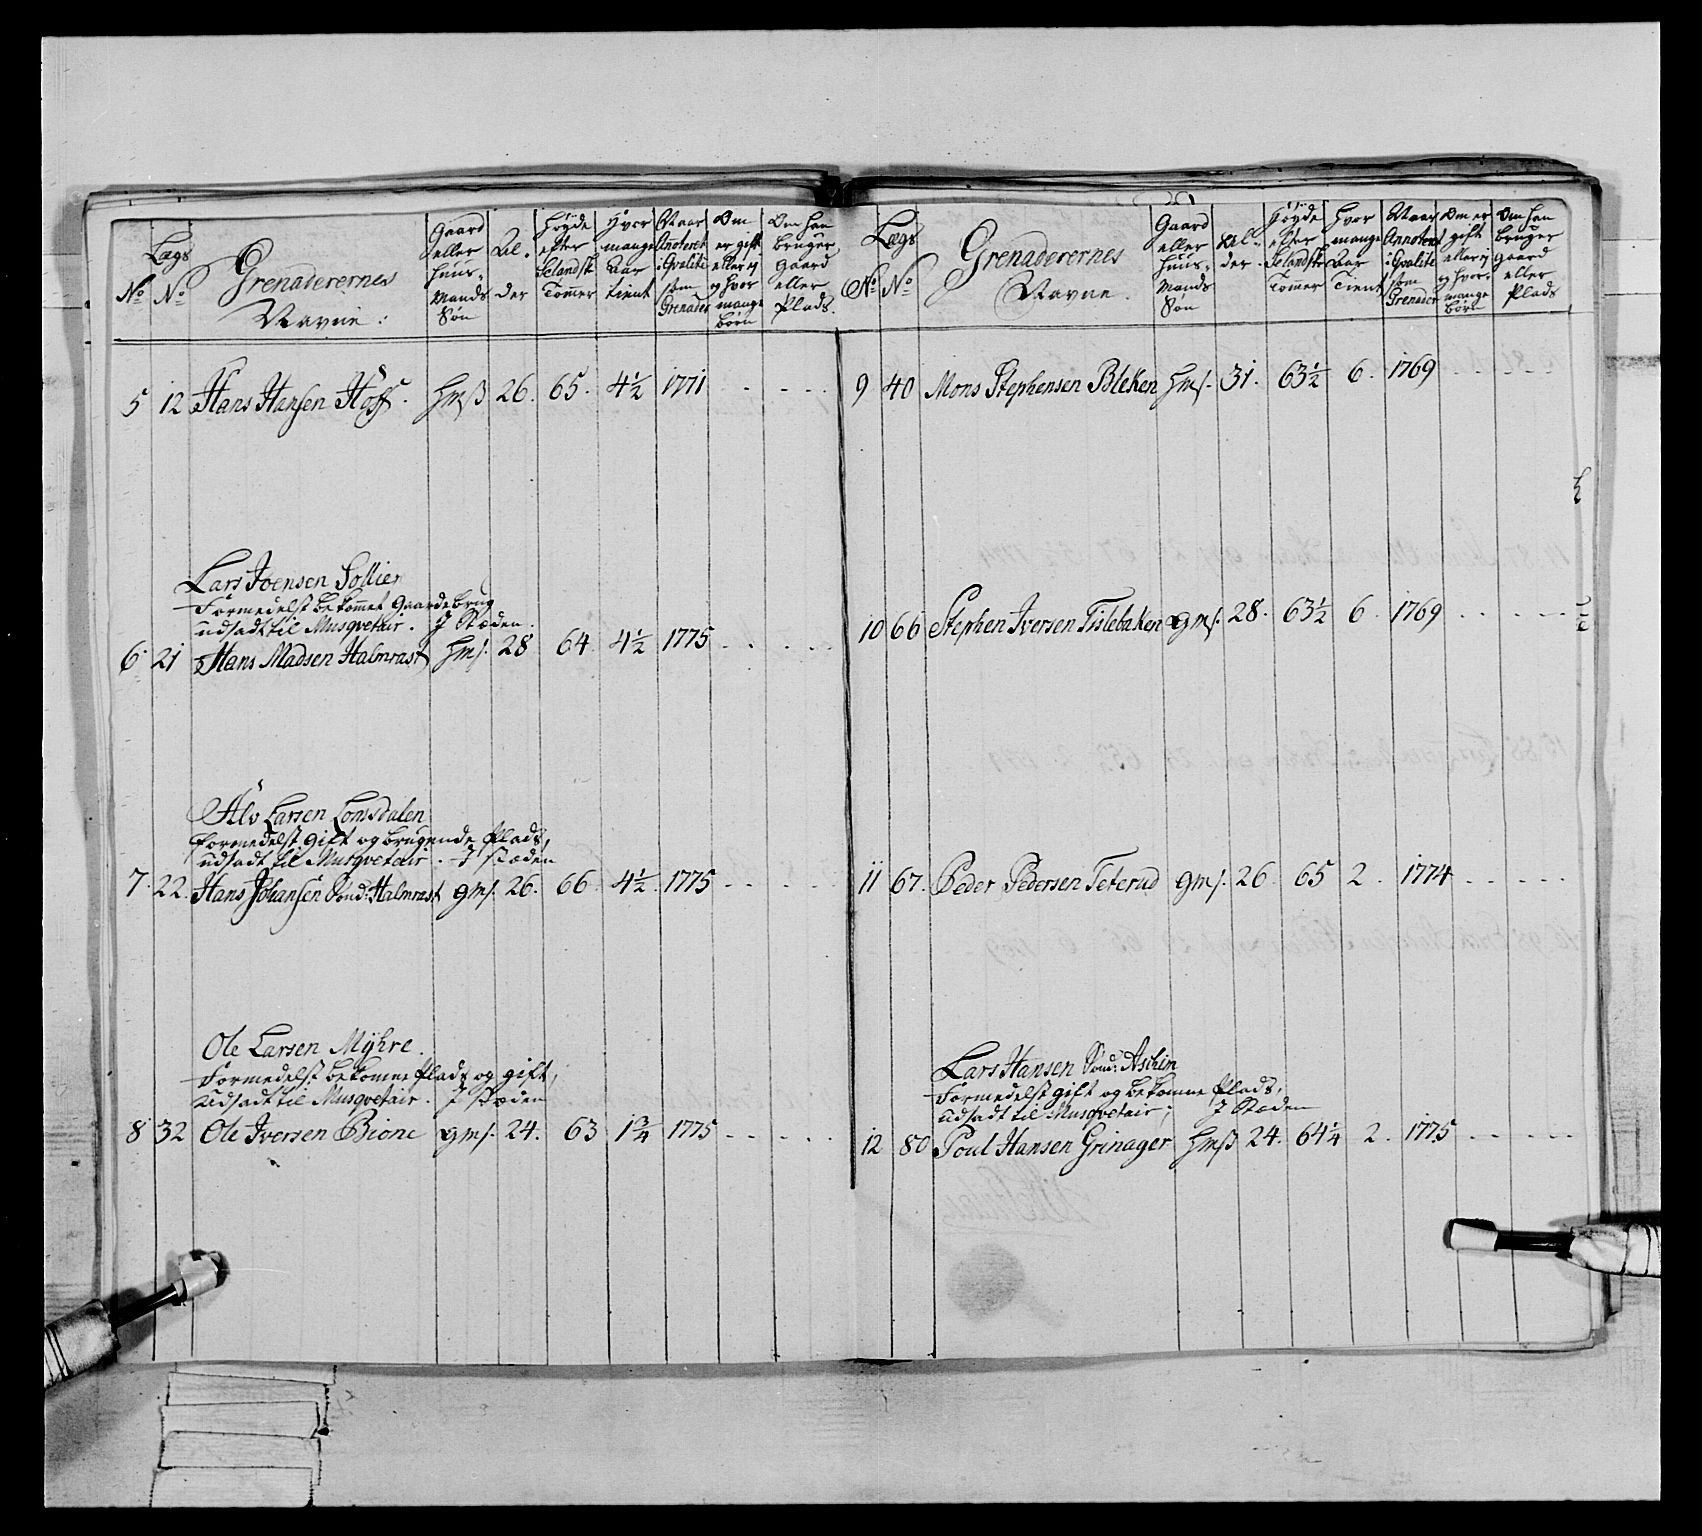 No
Lægs No
Grenaderernes Navne:
Gaard eller Huus-Mands Søn
Al-der
Høyde efter Selandsk Tommer
Hvor mange Aar tient
Naar Anoteret i Qvalite som Grenader
Om er gift eller ej og hvor mange børn
Om han bruger gaard eller Plads.
5 12 Hans Hansen Hoff. Hmß 26. 65. 4½ 1771 . . . .
Lars Joensen Sollien
Formedelst bekommet Gaardebrug
udsadt til Musqvetair. I Stæden.
6 21 Hans Madsen Halmrast Hmß. 28 64. 4½ 1775 . . . . .
Alv Larsen Lomsdalen
formedelst gift og brugende Plads,
udsadt til Musqvetair. I Stæden
7. 22. Hans Johansen Sond: Halmrast gmß. 26. 66. 4½. 1775 . . . . .
Ole Larsen Myhre.
Formedelst bekomne Plads og gift,
udsadt til Musqvetair. I Stæden
8 32 Ole Iversen Bione gmß. 24. 63 1¾ 1775 . . . . .
No
Lægs No
Grenaderernes Navne.
Gaard eller Huus-Mands Søn
Al-der.
Høyde efter Selandsk Tommer
Hvor mange Aar Tient
Naar Annoteret i Qvalite som Grenader
Om er gift eller ej og hvor mange børn
Om han bruger gaard eller Plads
9 40 Mons Stephensen Bleken Hmß. 31. 63½ 6. 1769 . . . . .
10 66 Stephen Iversen Tislebaken gmß. 28. 63½ 6. 1769 . . . . .
11 67. Peder Pedersen Teterud gmß. 26. 65 2. 1774 . . . . .
Lars Hansen Sond: Aschim
Formedelst gift og bekomne Plads,
udsadt til Musqvetair; I Stæden
12 80 Poul Hansen Grinager Hmß 24. 64¼ 2. 1775 . . . . .